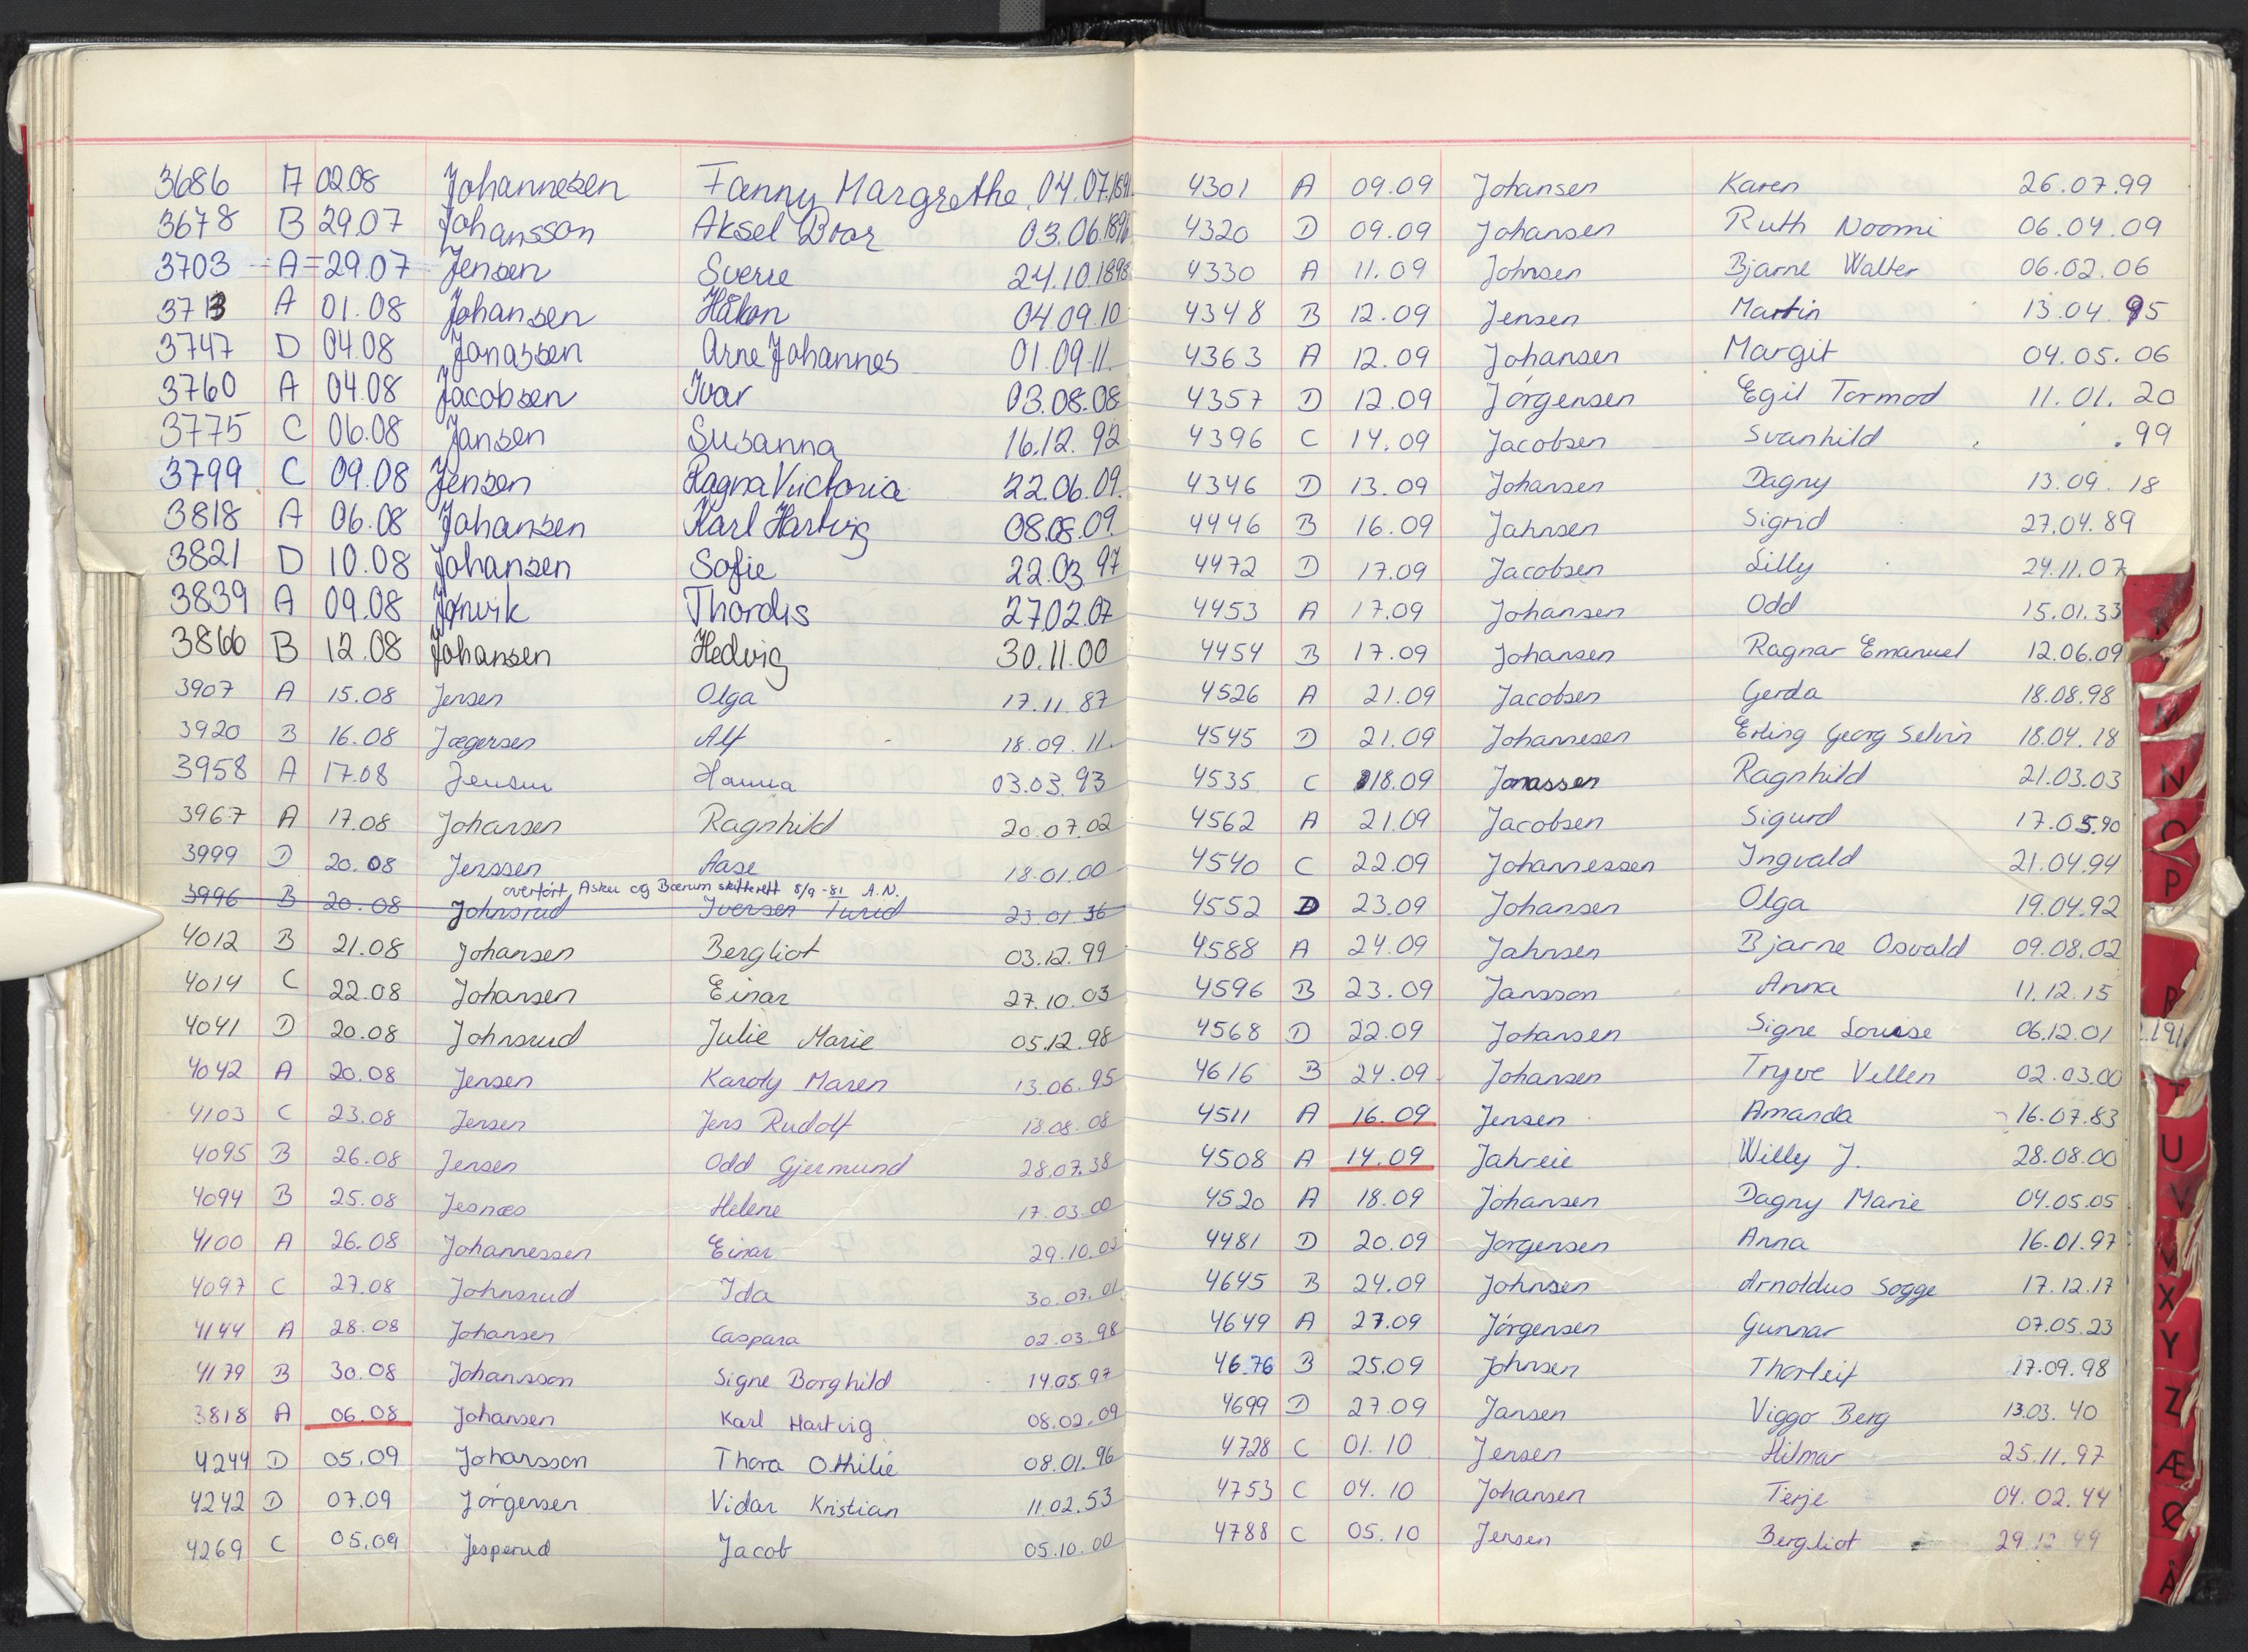 3686 A 02.08 Johannesen Fanny Margrethe 04.07.1891
3678 B 29.07 Johansson Aksel Ivar 03.06.1896
3703 A 29.07 Jensen Sverre 24.10.1898
3713 A 01.08 Johansen Håkon 04.09.10
3747 D 04.08 Jonassen Arne Johannes 01.09.11
3760 A 04.08 Jacobsen Ivar 03.08.08
3775 C 06.08 Jansen Susanna 16.12.92
3799 C 09.08 Jensen Ragna Victoria 22.06.09
3818 A 06.08 Johansen Karl Hartvig 08.08.09
3821 D 10.08 Johansen Sofie 22.03.97
3839 A 09.08 Jønvik Thordis 27.02.07
3866 B 12.08 Johansen Hedvig 30.11.00
3907 A 15.08 Jensen Olga 17.11.87
3920 B 16.08 Jægersen Alf 18.09.11
3958 A 17.08 Jensen Hanna 03.03.93
3967 A 17.08 Johansen Ragnhild 20.07.02
3999 D 20.08 Jenssen Aase 18.01.00
overført, Asker og Bærum skifterett 8/9-81 A.N.
3996 B 20.08 Johnsrud Iversen Turid 23.01.36
4012 B 21.08 Johansen Bergliot 03.12.99
4014 C 22.08 Johansen Einar 27.10.03
4041 D 20.08 Johnsrud Julie Marie 05.12.98
4042 A 20.08 Jensen Karoly Maren 13.06.95
4103 C 23.08 Jensen Jens Rudolf 18.08.08
4095 B 26.08 Jensen Odd Gjermund 28.07.38
4094 B 25.08 Jesnes Helene 17.03.00
4100 A 26.08 Johannessen Einar 29.10.02
4097 C 27.08 Johnsrud Ida 30.07.01
4144 A 28.08 Johansen Caspara 02.03.98
4179 B 30.08 Johansson Signe Borghild 14.05.97
3818 A 06.08 Johansen Karl Hartvig 08.02.09
4244 D 05.09 Johansson Thora Othilie 08.01.96
4242 D 07.09 Jørgensen Vidar Kristian 11.02.53
4269 C 05.09 Jesperud Jacob 05.10.00
4301 A 09.09 Johansen Karen 26.07.99
4320 D 09.09 Johansen Ruth Noomi 06.04.09
4330 A 11.09 Johnsen Bjarne Walter 06.02.06
4348 B 12.09 Jensen Martin 13.04.95
4363 A 12.09 Johansen Margit 04.05.06
4357 D 12.09 Jørgensen Egil Tormod 11.01.20
4396 C 14.09 Jacobsen Svanhild . .99
4346 D 13.09 Johansen Dagny 13.09.18
4446 B 16.09 Jahnsen Sigrid 27.04.89
4472 D 17.09 Jacobsen Lilly 24.11.07
4453 A 17.09 Johansen Odd 15.01.33
4454 B 17.09 Johansen Ragnar Emanuel 12.06.09
4526 A 21.09 Jacobsen Gerda 18.08.98
4545 D 21.09 Johannesen Erling Georg Selvin 18.04.18
4535 C 18.09 Jonassen Ragnhild 21.03.03
4562 A 21.09 Jacobsen Sigurd 17.05.90
4540 C 22.09 Johannessen Ingvald 21.04.94
4552 D 23.09 Johansen Olga 19.04.92
4588 A 24.09 Jahnsen Bjarne Osvald 09.08.02
4596 B 23.09 Jansson Anna 11.12.15
4568 D 22.09 Johansen Signe Louise 06.12.01
4616 B 24.09 Johansen Tryve Villen 02.03.00
4511 A 16.09 Jensen Amanda 16.07.83
4508 A 14.09 Jahreie Willy J. 28.08.00
4520 A 18.09 Johansen Dagny Marie 04.05.05
4481 D 20.09 Jørgensen Anna 16.01.97
4645 B 24.09 Johnsen Arnoldus Sogge 17.12.17
4649 A 27.09 Jörgensen Gunnar 07.05.23
4676 B 25.09 Johnsen Thorleif 17.09.98
4699 D 27.09 Jansen Viggo Berg 13.03.40
4728 C 01.10 Jensen Hilmar 25.11.97
4753 C 04.10 Johansen Terje 04.02.44
4788 C 05.10 Jensen Bergliot
N
O
P
R
T
U
V
X
Y
Z
Æ
Ø
Å